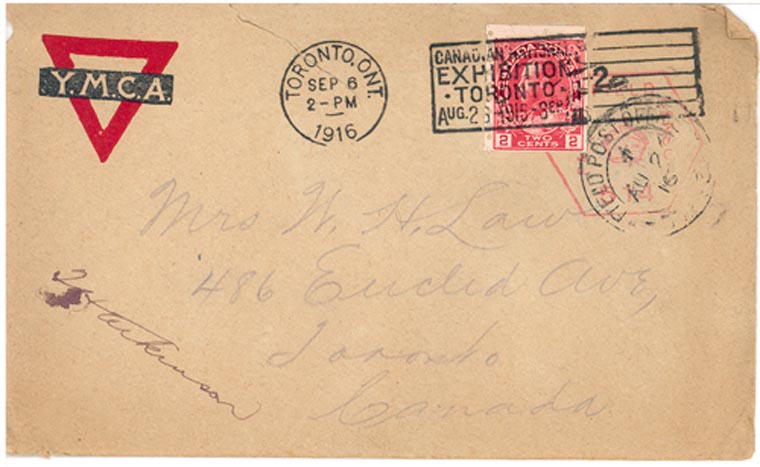 Y.M.C.A.
TORONTO, ONT.
SEP 6
2-PM
1916
CANADIAN NATIONAL
EXHIBITION
·TORONTO·
AUG. 26
2
TWO
CENTS
2
FIELD POST OFFICE
AU 2
16
Mrs W. H. Law
486 Euclid Ave,
Toronto
Canada